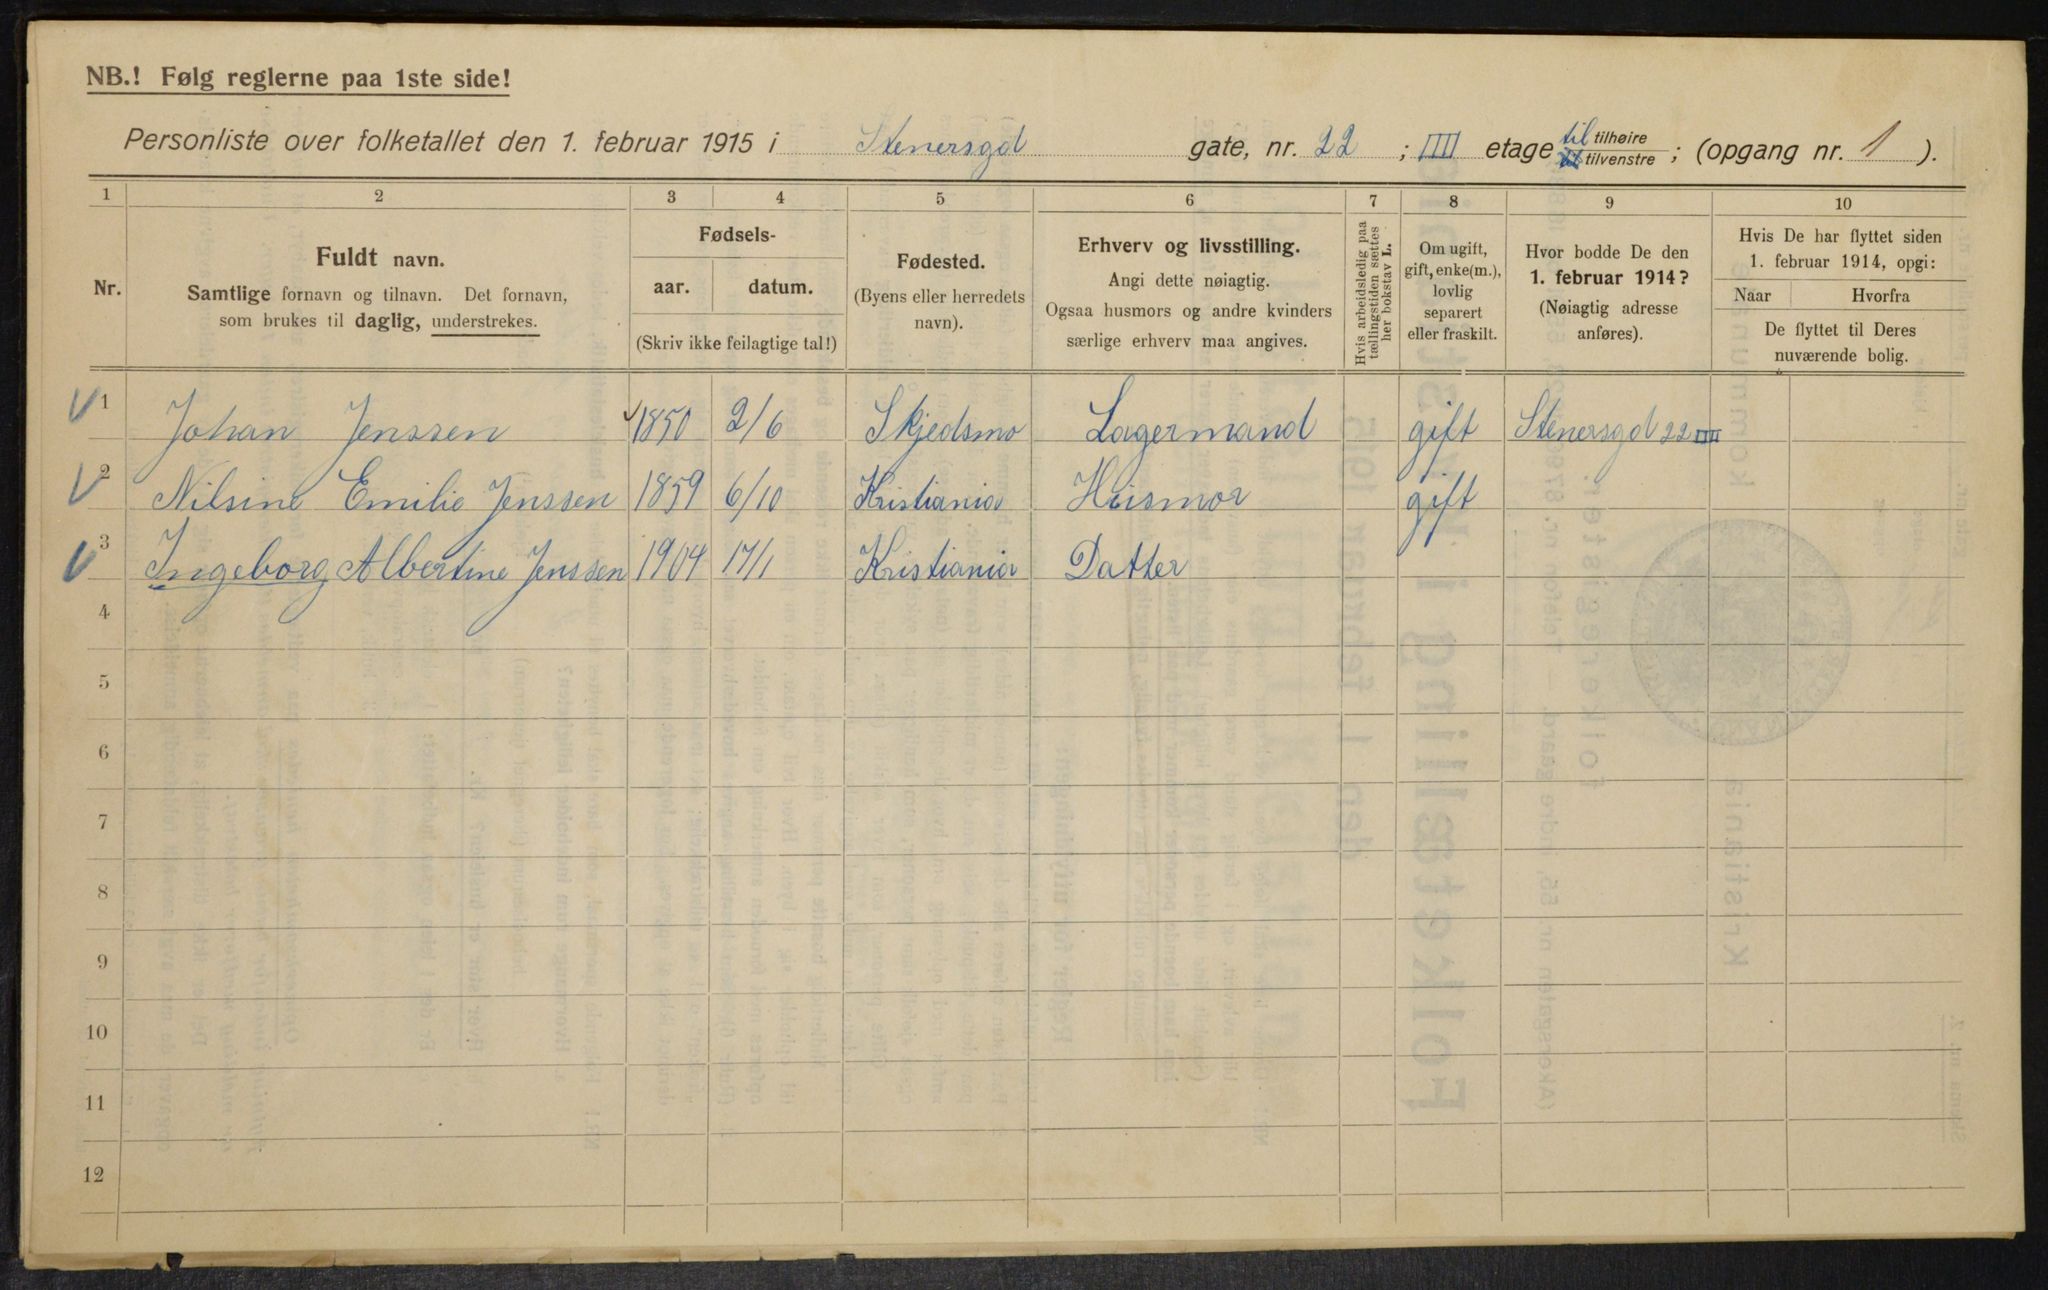 NB.! Følg reglerne paa 1ste side!
Personliste over folketallet den 1. februar 1915 i Stenersgd gate, nr. 22 ; IIII etage til tilhøire tilvenstre ; (opgang nr. 1 ).
1 2 3 4 5 6 7 8 9 10
Nr.
Fuldt navn.
Samtlige fornavn og tilnavn. Det fornavn,
som brukes til daglig, understrekes.
Fødsels-
aar. datum.
(Skriv ikke feilagtige tal!)
Fødested.
(Byens eller herredets
navn).
Erhverv og livsstilling.
Angi dette nøiagtig.
Ogsaa husmors og andre kvinders
særlige erhverv maa angives.
Hvis arbeidsledig paa
tællingstiden sættes
her bokstav L.
Om ugift,
gift, enke(m.),
lovlig
separert
eller fraskilt.
Hvor bodde De den
1. februar 1914?
(Nøiagtig adresse
anføres).
Hvis De har flyttet siden
1. februar 1914, opgi:
Naar Hvorfra
De flyttet til Deres
nuværende bolig.
1 Johan Jenssen 1850 2/6 Skjedsmo Lagermand gift Stenersgd 22 IIII
2 Nilsine Emilie Jenssen 1859 6/10 Kristiania Husmor gift
3 Ingeborg Albertine Jenssen 1904 17/1 Kristiania Datter
4
5
6
7
8
9
10
11
12